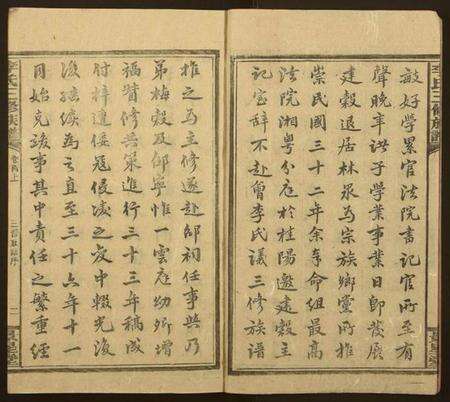 敏好學累官法院書記官所至有
聲晚年洪子學業事業日即發展
建毅退居林泉為宗族鄉黨所推
崇民國三十二年余奉命組最高
法院湘粵分庭於桂陽邀建毅主
記室辭不赴會李氏議三修族譜
推之為主修遂赴邵祠任事與乃
弟梅毅及邵寧惟一雲庭幼卿增
福贊修共策進行三十三年稿成
付梓遭倭寇侵凌之亥中輟光復
後接續為之直至三十六年十一
月始克竣事其中責任之繁重經
李氏三修族譜
卷首上
三修族譜序
二